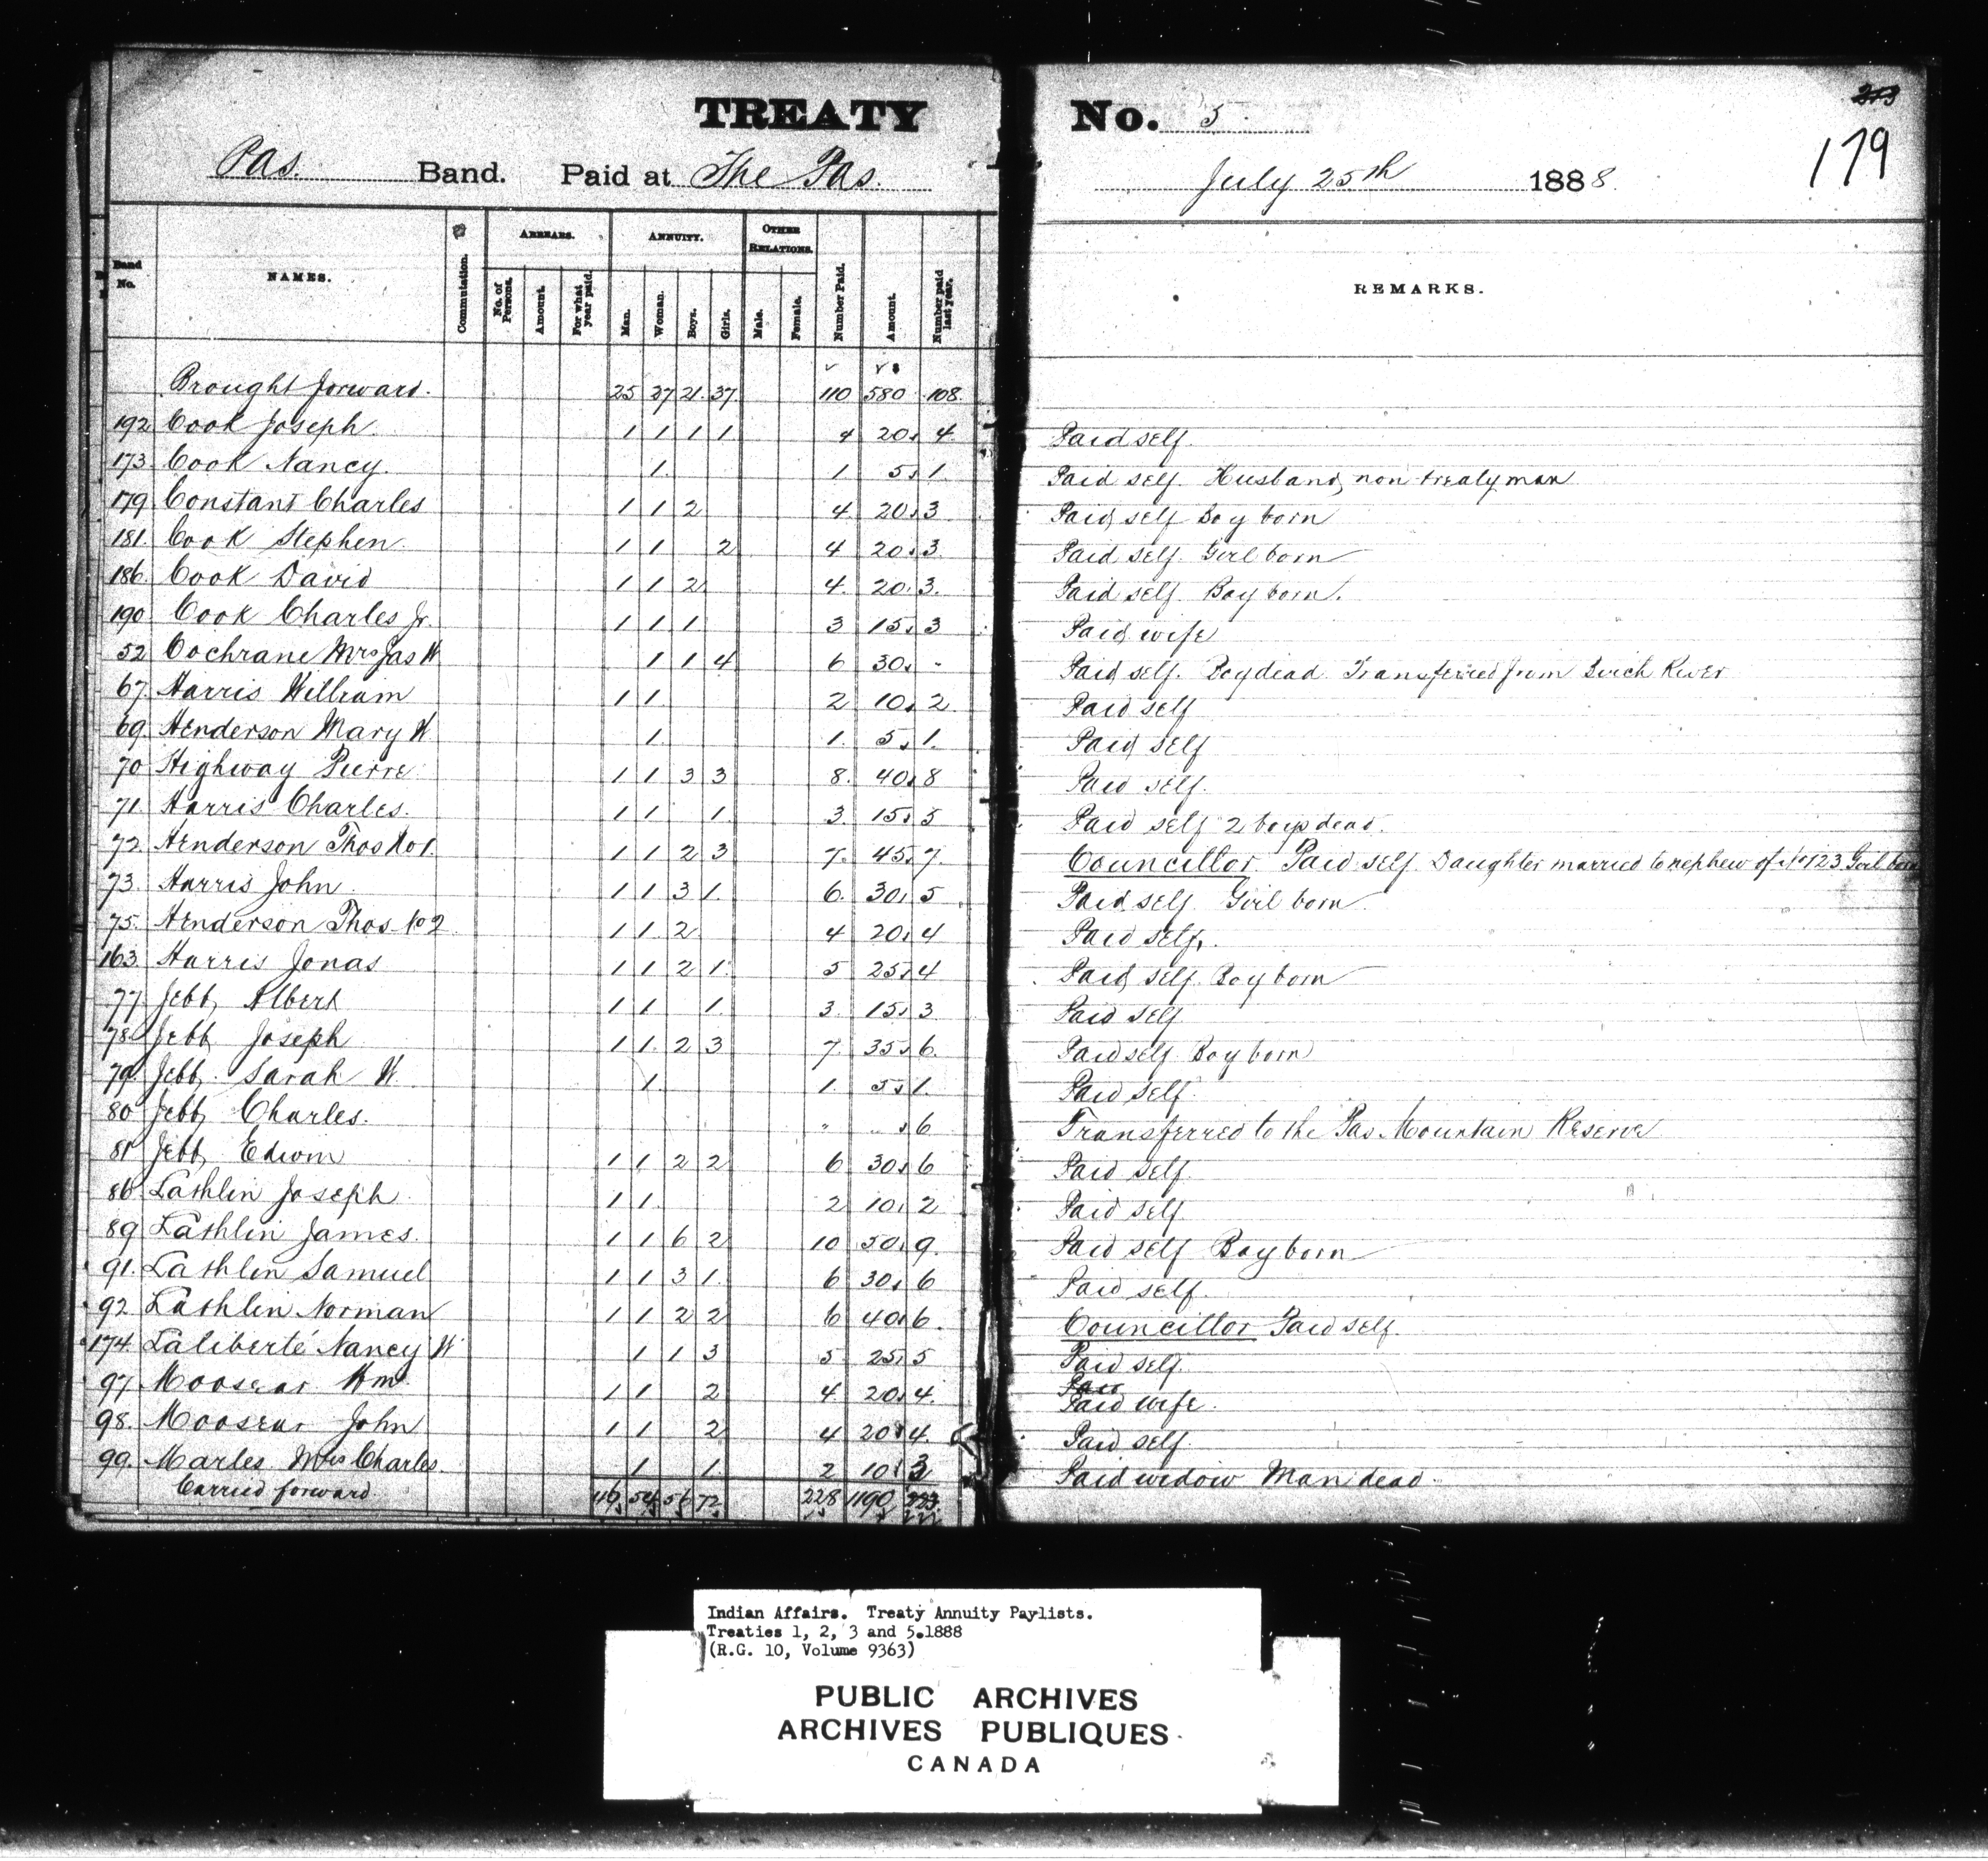 TREATY No. 5.
213
179
Pas. Band. Paid at The Pas. July 25th 1888.
Band No. NAMES. Commutation. ARREARS. No. of Persons. Amount. For what year paid. ANNUITY. Man. Woman. Boys. Girls. OTHER RELATIONS. Male. Female. Number Paid. Amount. Number paid last year. REMARKS.
Brought forward. 25 27 21 37 110 580 108
192 Cook Joseph. 1 1 1 1 4 20 4 Paid self.
173 Cook Nancy. 1. 1. 5 1. Paid self. Husband, non treaty man
179 Constant Charles 1 1 2 4 20 3 Paid self Boy born
181. Cook Stephen 1 1 2 4 20 3 Paid self. Girl born
186. Cook David 1 1 2 4. 20. 3. Paid self. Boy born.
190 Cook Charles Jr. 1 1 1 3 15 3 Paid wife
52 Cochrane Mrs Jas W 1 1 4 6 30 - Paid self. Boy dead. Transferred from Birch River
67 Harris William 1 1. 2 10 2 Paid self
69. Henderson Mary W 1. 1. 5 1. Paid self
70 Highway Pierre 1 1 3 3 8. 40 8 Paid self.
71. Harris Charles. 1 1 1. 3. 15 5 Paid self 2 boys dead.
72. Henderson Thos No 1. 1 1 2 3 7. 45 7. Councillor Paid self. Daughter married to nephew of No 123. Girl born
73. Harris John 1 1 3 1. 6. 30 5 Paid self. Girl born
75. Henderson Thos No 2 1 1. 2 4 20 4 Paid self.
163 Harris Jonas 1 1 2 1. 5 25 4 Paid self. Boy born
77 Jebb, Albert 1 1 1. 3. 15 3 Paid self
78. Jebb Joseph 1 1. 2 3 7. 35 6. Paid self. Boy born
79. Jebb, Sarah W. 1. 1. 5 1. Paid self.
80 Jebb, Charles. " " 6 Transferred to the Pas Mountain Reserve
81 Jebb, Edwin 1 1 2 2 6 30 6 Paid self.
86 Lathlin Joseph 1 1. 2 10 2 Paid self.
89 Lathlin James. 1 1 6 2 10 50 9. Paid self Boy born
91. Lathlin Samuel 1 1 3 1. 6 30 6 Paid self.
92 Lathlin Norman 1 1 2 2 6 40 6. Councillor Paid self.
174 Laliberté Nancy W 1 1 3 5 25 5 Paid self.
97 Moosear Wm 1 1 2 4 20 4. Paid wife.
98. Moosear John 1 1 2 4 20 4. Paid self.
99. Marles Mrs Charles. 1 1. 2 10 3 Paid widow Man dead.
Carried forward 46 54 56 72 228 1190 223
Indian Affairs. Treaty Annuity Paylists.
Treaties 1, 2, 3 and 5.1888
(R.G. 10, Volume 9363)
PUBLIC ARCHIVES
ARCHIVES PUBLIQUES
CANADA